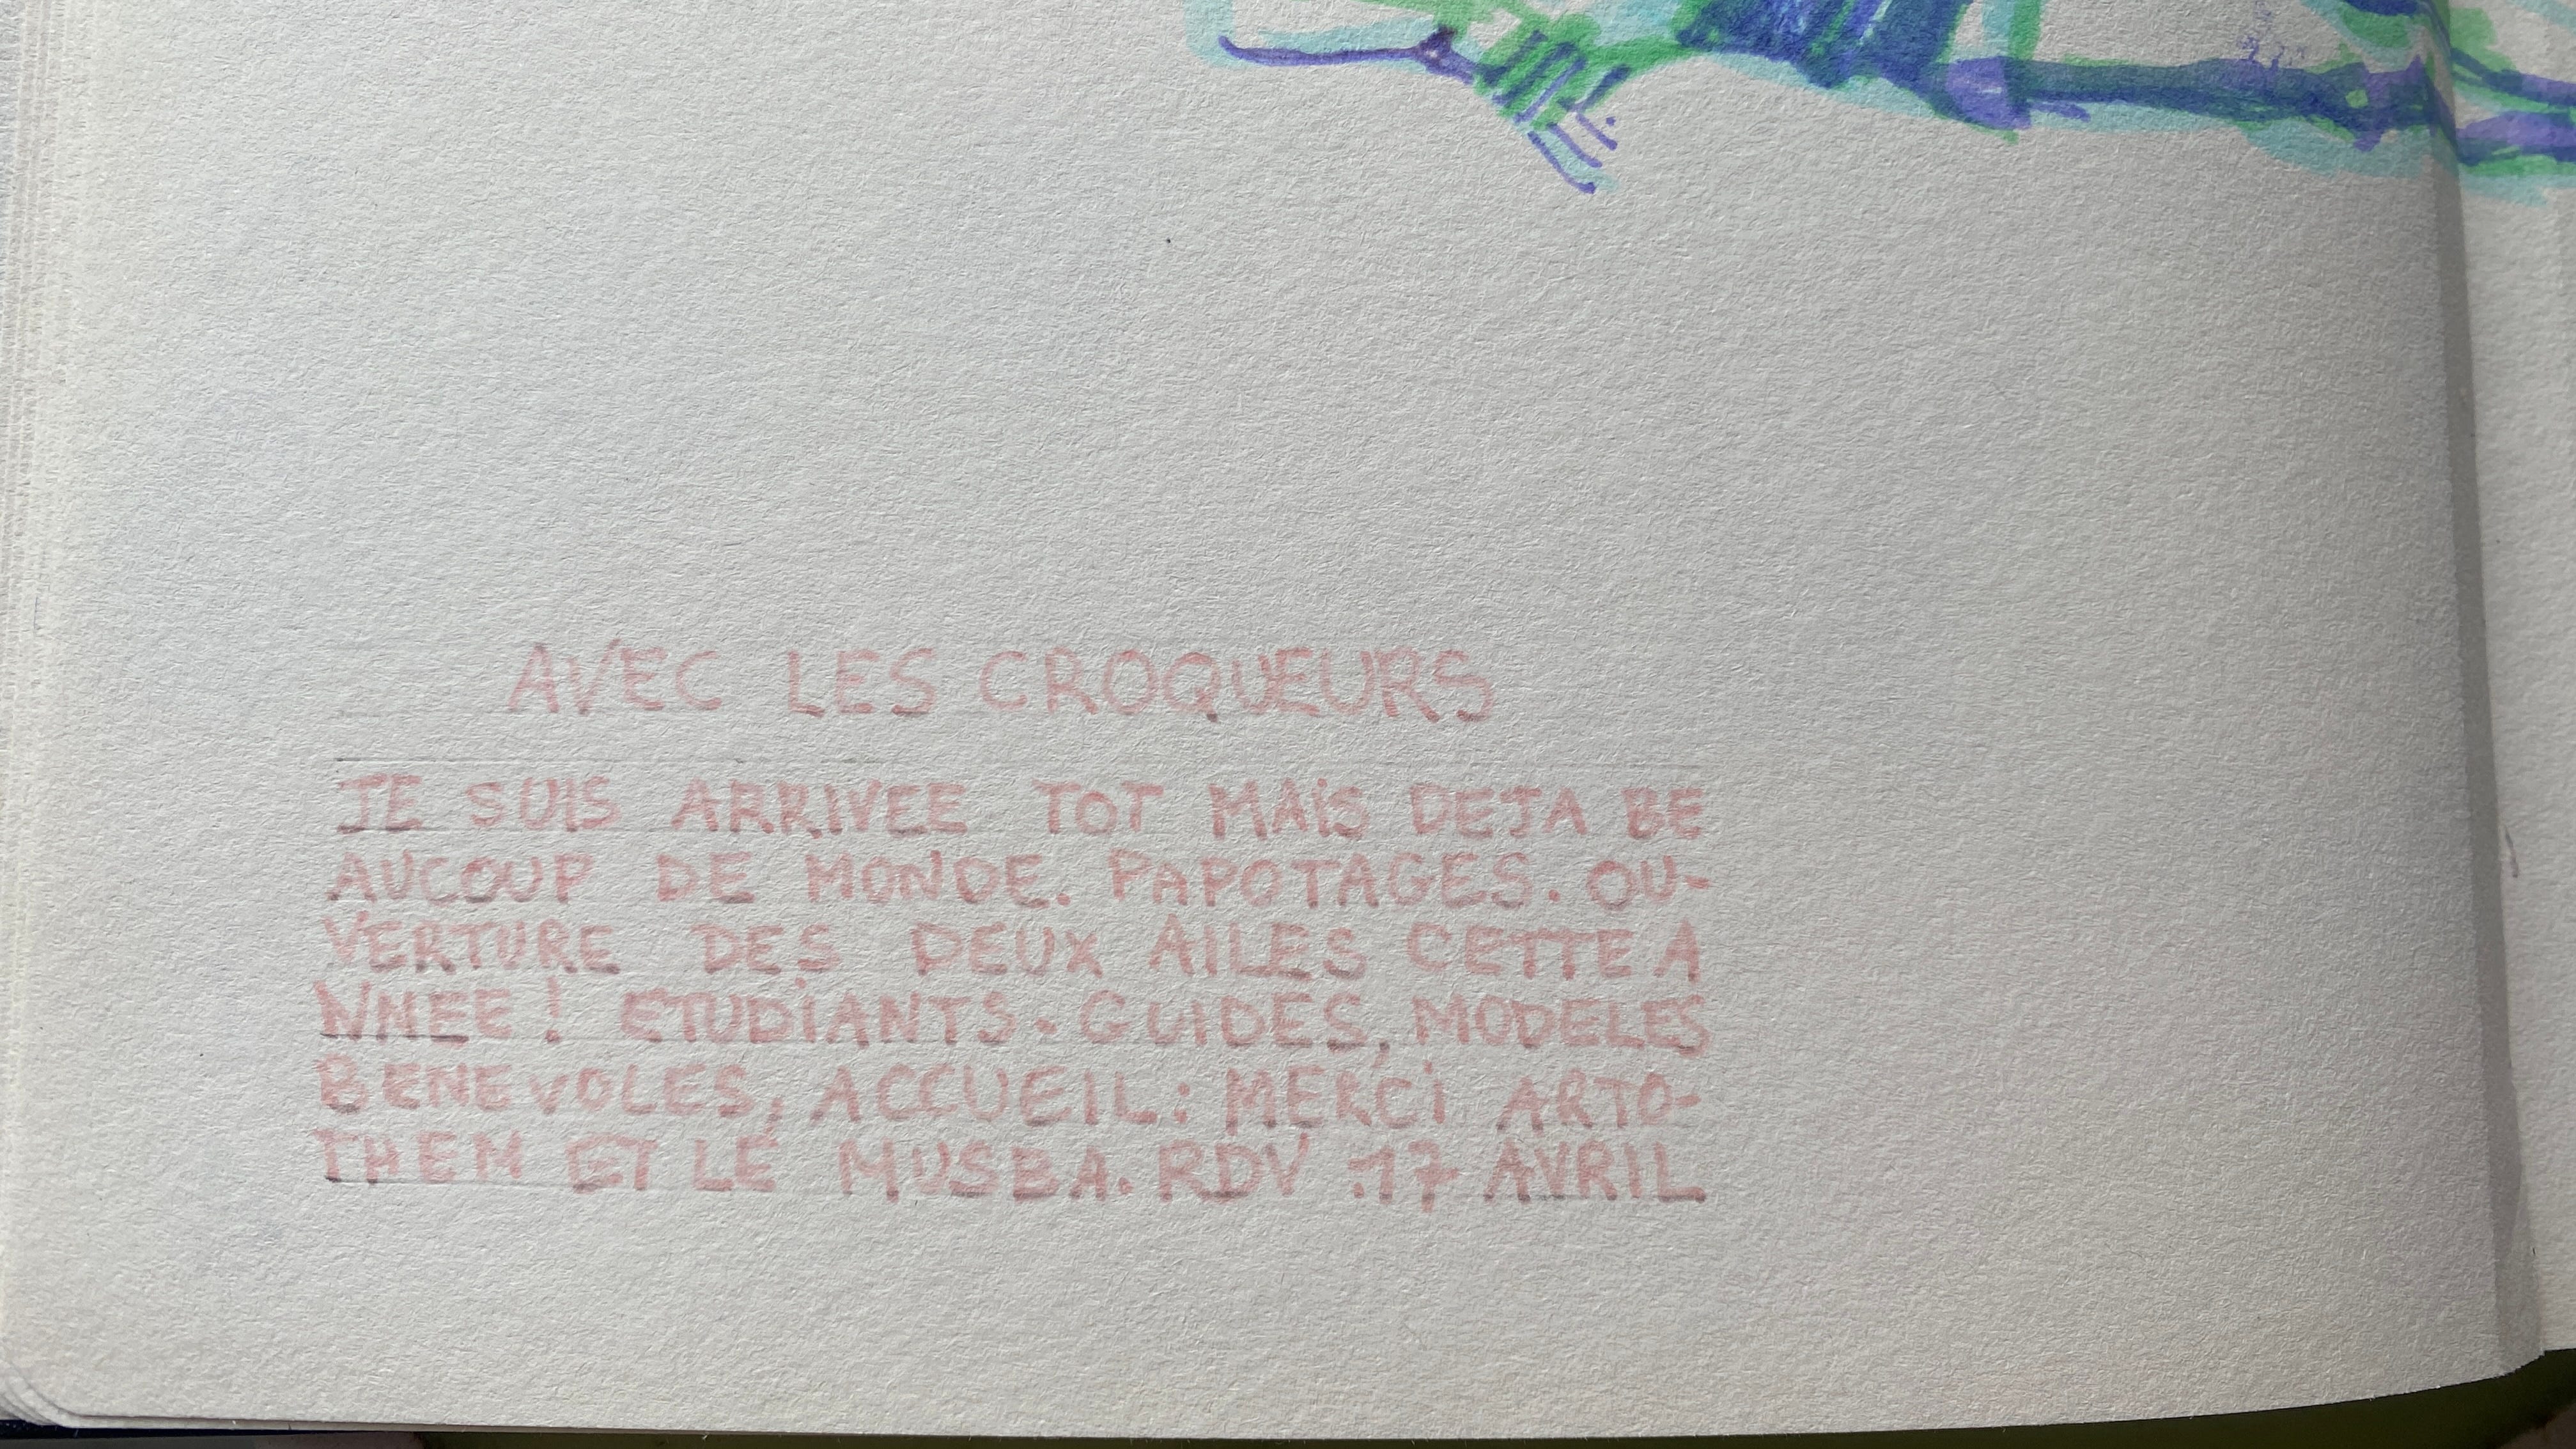 AVEC LES CROQUEURS
JE SUIS ARRIVEE TOT MAIS DEJA BE
AUCOUP DE MONDE. PAPOTAGES. OU-
VERTURE DES DEUX AILES CETTE A
NNEE! ETUDIANTS-GUIDES, MODELES
BENEVOLES, ACCUEIL: MERCI ARTO-
THEM ET LE MUSBA. RDV :17 AVRIL